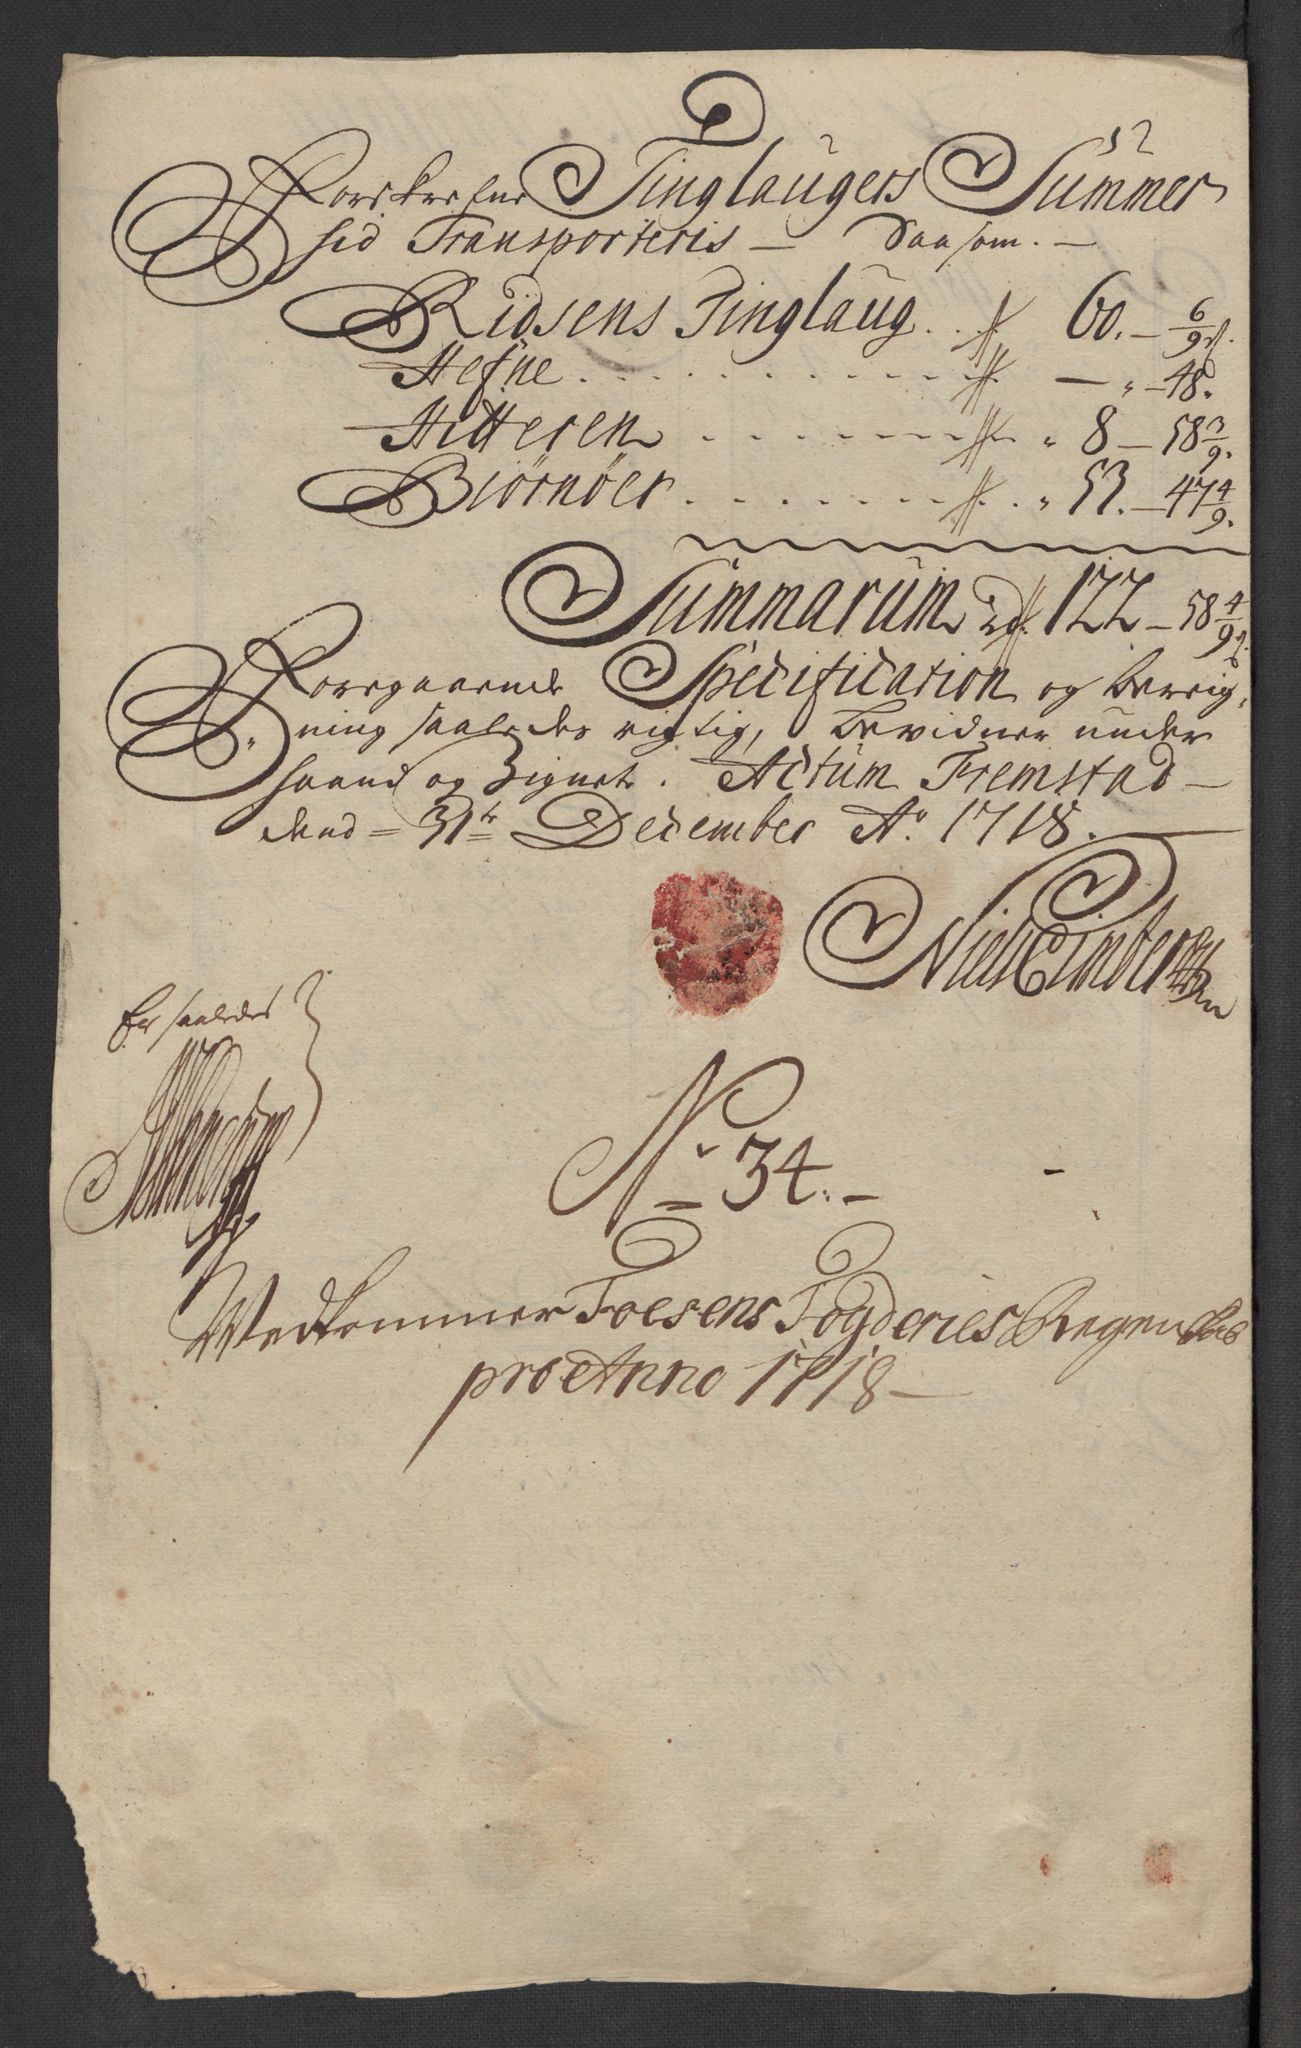 Forskrefne Tinglaugers Summer
hid Transporteris — Saasom. —
Ridsens Tinglaug . . 60. — 6/9 s.
Hefne . . . . . . . . . — „ — 48.
Hitteren . . . . . . . . „ 8 — 58 3/9.
Biørnøer . . . . . . . . „ 53. — 47 4/9.
Summarum 122 — 58 4/9 s.
Foregaaende Specification og bereig-
ning saaledes rigtig, bevidner under
haand og Zignete. Actum Fremstad —
dend = 31te December Ao. 1718. —
Niels Cimber
Er saaledes
No. 34. —
Wedkommer Foesens Fogderies Regenskab
pro Anno 1718 —